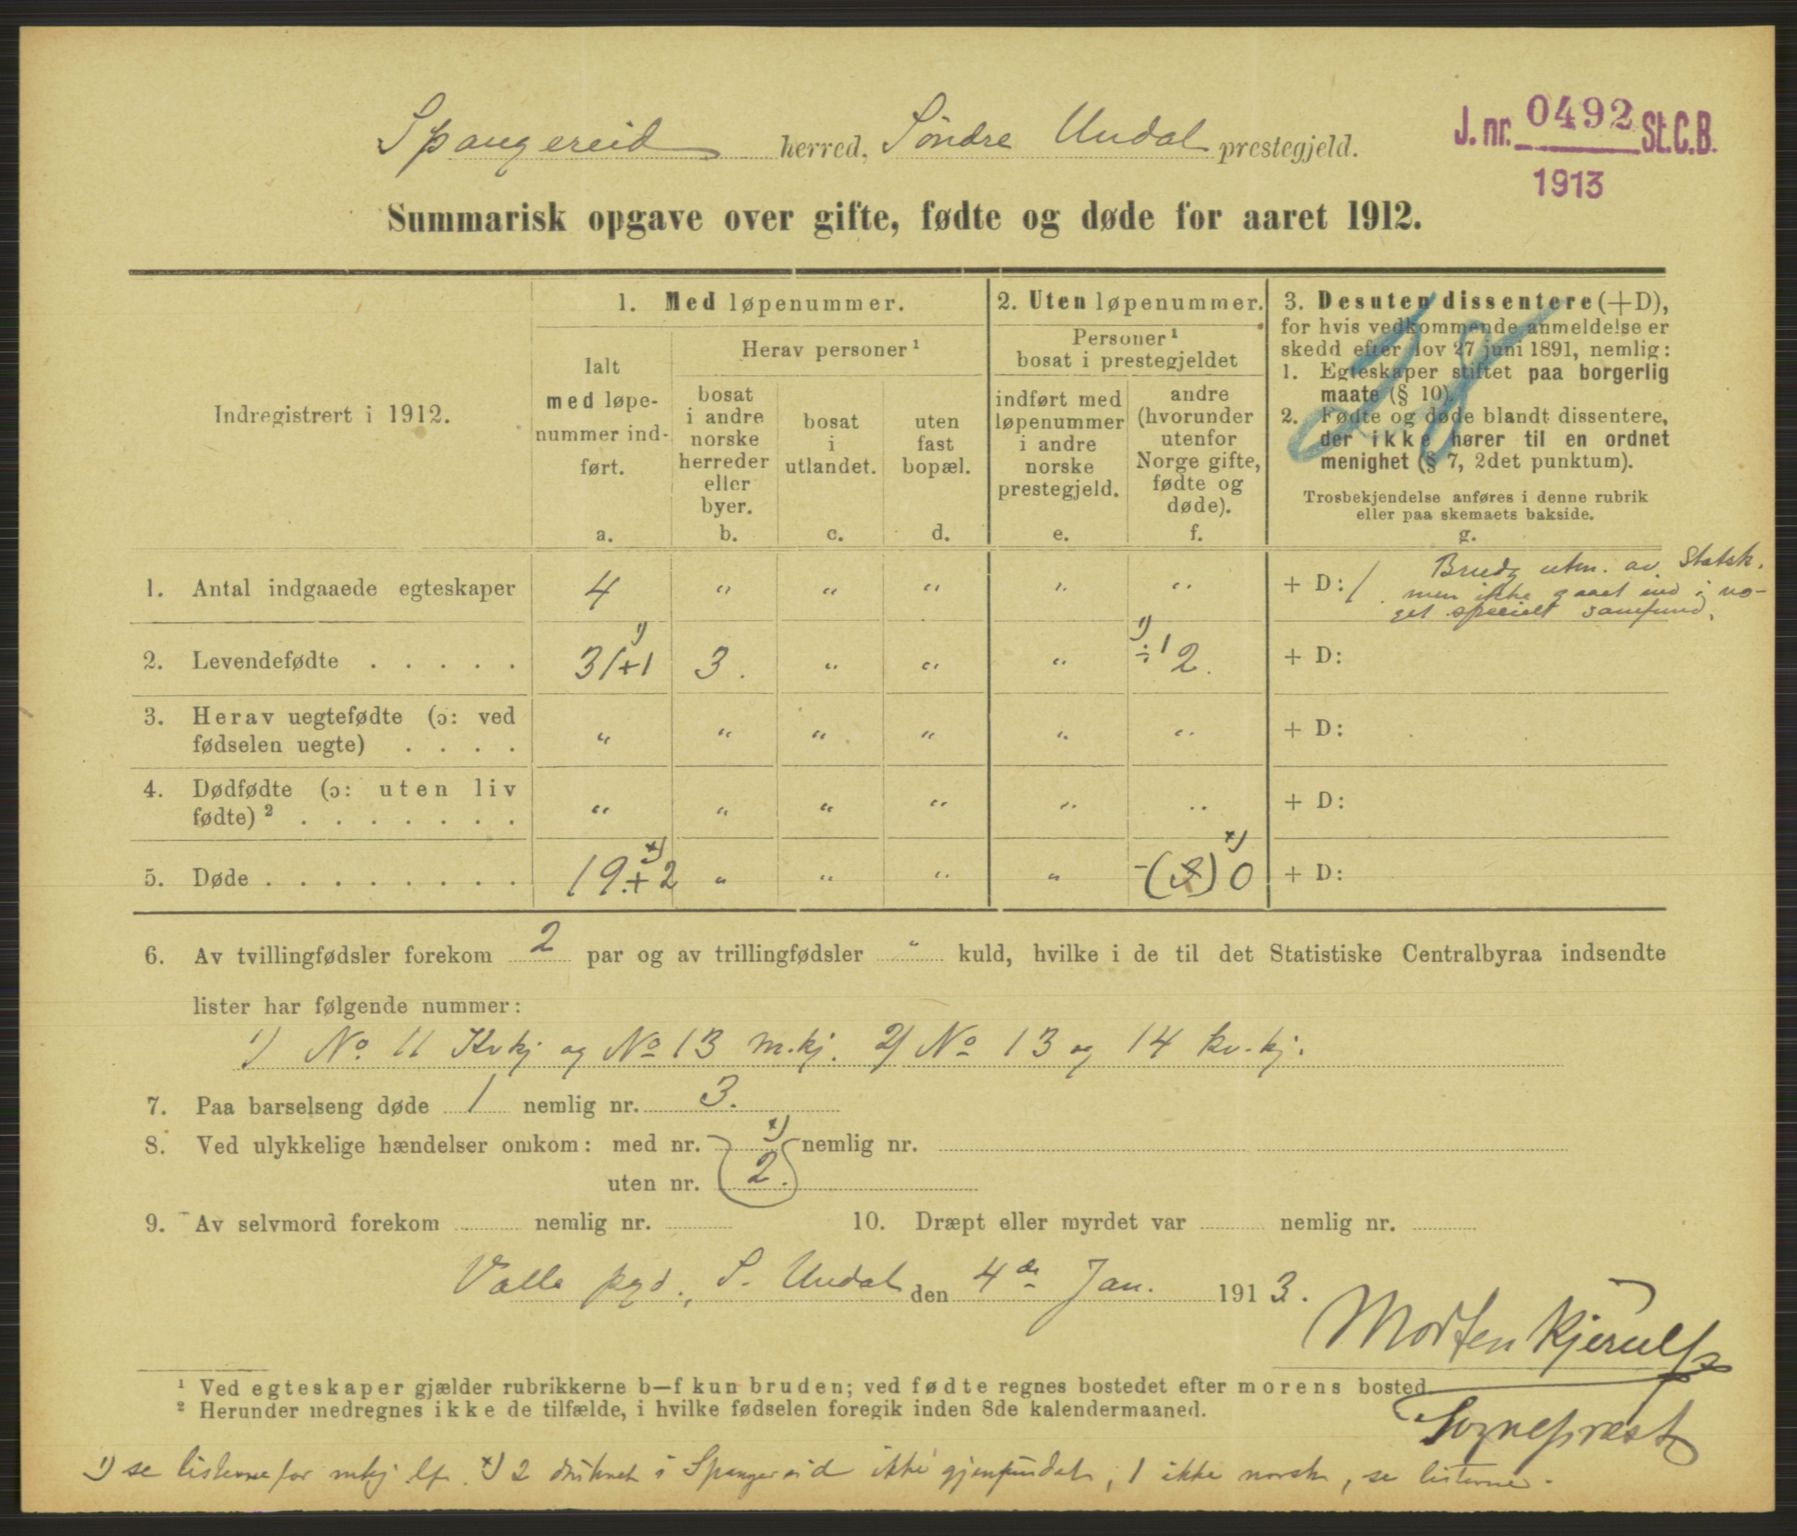 Spangereid herred, Søndre Undal prestegjeld.
J. nr. 0492 St. C. B.
1913
Summarisk opgave over gifte, fødte og døde for aaret 1912.
Indregistrert i 1912.
1. Med løpenummer.
Ialt med løpenummer indført.
a.
Herav personer ¹
bosat i andre norske herreder eller byer.
b.
bosat i utlandet.
c.
uten fast bopæl.
d.
2. Uten løpenummer.
Personer ¹ bosat i prestegjeldet
indført med løpenummer i andre norske prestegjeld.
e.
andre (hvorunder utenfor Norge gifte, fødte og døde).
f.
3. Desuten dissentere (+D),
for hvis vedkommende anmeldelse er
skedd efter lov 27 juni 1891, nemlig:
1. Egteskaper stiftet paa borgerlig
maate (§ 10).
2. Fødte og døde blandt dissentere,
der ikke hører til en ordnet
menighet (§ 7, 2det punktum).
Trosbekjendelse anføres i denne rubrik
eller paa skemaets bakside.
g.
1. Antal indgaaede egteskaper 4 " " " " " + D: 1 Brudg utm. av Statsk.
men ikke gaaet ind i no-
get specielt samfund.
2. Levendefødte . . . . . 31+1 ¹) 3. " " " ¹) ÷1 2. + D:
3. Herav uegtefødte (ɔ: ved
fødselen uegte) . . . . " " " " " " + D:
4. Dødfødte (ɔ: uten liv
fødte) ² . . . . . . . " " " " " " + D:
5. Døde . . . . . . . . 19+2 ˣ) " " " " ˣ) 0 + D:
6. Av tvillingfødsler forekom 2 par og av trillingfødsler " kuld, hvilke i de til det Statistiske Centralbyraa indsendte
lister har følgende nummer:
1) No 11 Kvkj og No 13 m.kj. 2) No 13 og 14 kv.kj.
7. Paa barselseng døde 1 nemlig nr. 3.
8. Ved ulykkelige hændelser omkom: med nr. ˣ) nemlig nr.
uten nr. 2.
9. Av selvmord forekom nemlig nr. 10. Dræpt eller myrdet var nemlig nr.
Valle pgd., S. Undal den 4de Jan. 1913.
Morten Kjerulf
Sogneprest
¹ Ved egteskaper gjælder rubrikkerne b—f kun bruden; ved fødte regnes bostedet efter morens bosted
² Herunder medregnes ikke de tilfælde, i hvilke fødselen foregik inden 8de kalendermaaned.
¹) se listerne for mkj. ˣ) 2 druknet i Spangereid ikke gjenfundet, 1 ikke norsk, se listerne.